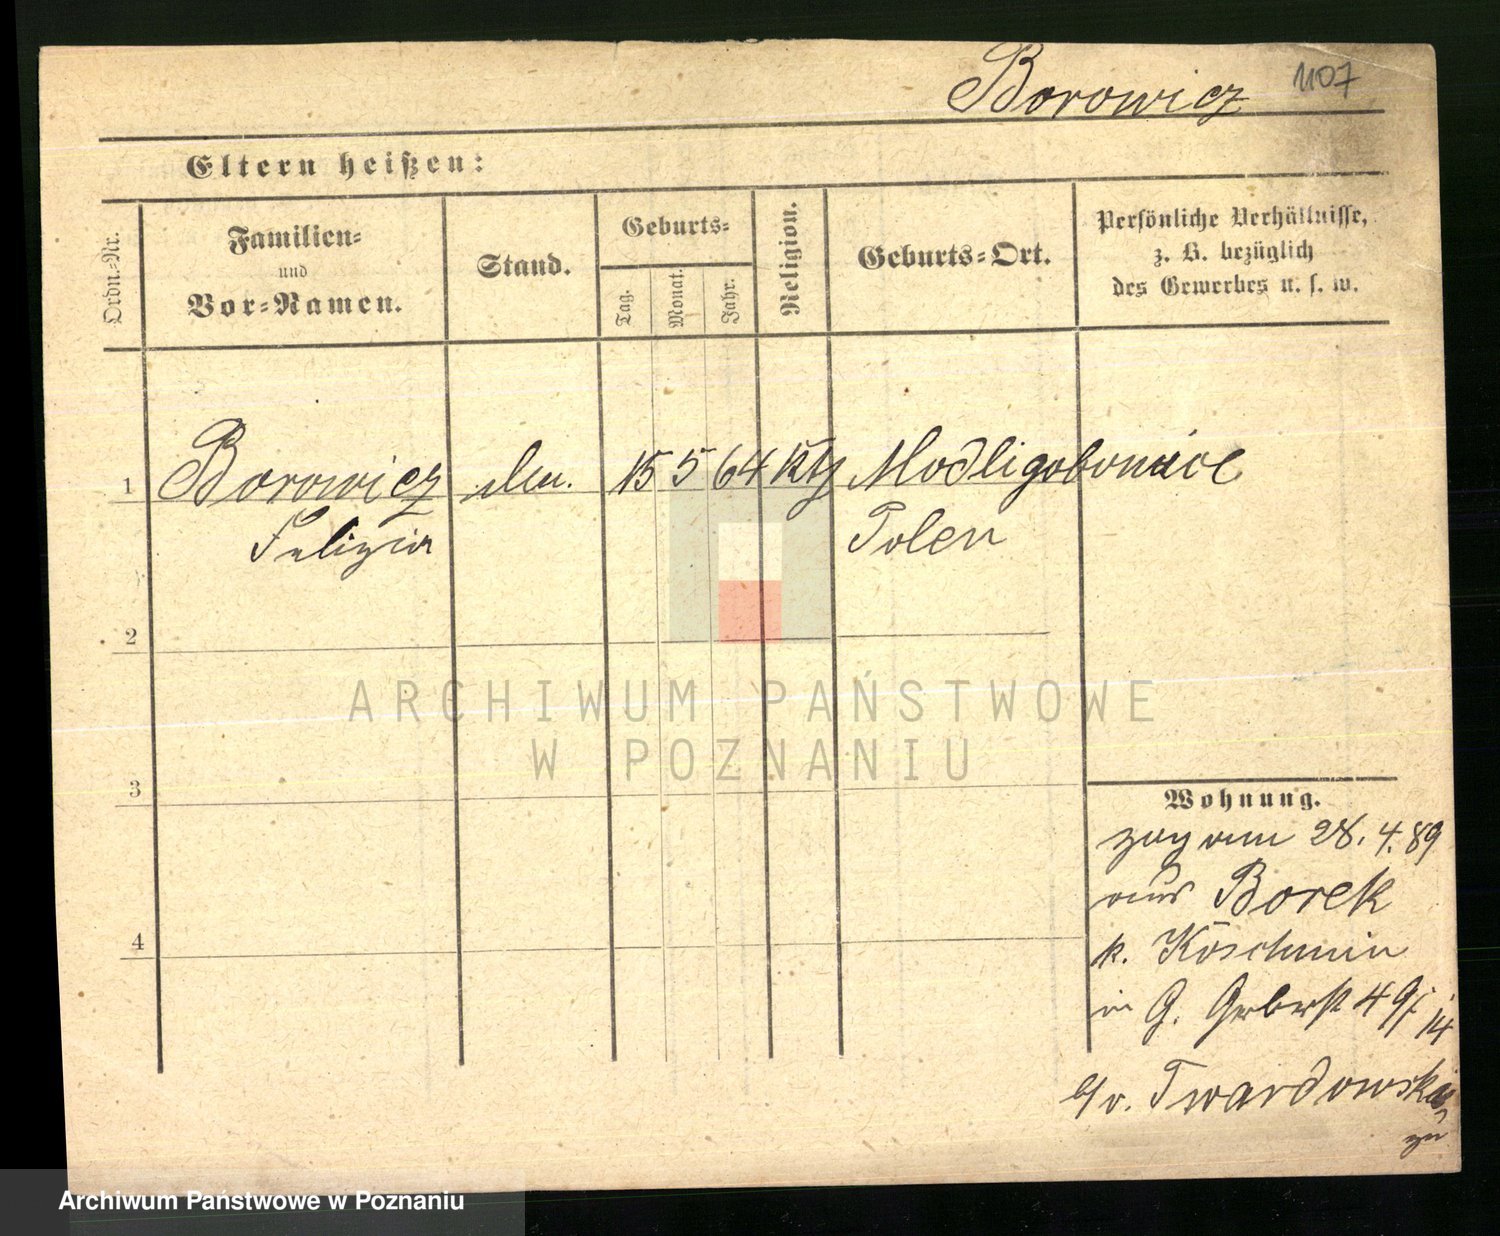 Borowicz 1107
Eltern heißen:
Ordn.-Nr.
Familien-
und
Vor-Namen.
Stand.
Geburts-
Tag.
Monat.
Jahr.
Religion.
Geburts-Ort.
Persönliche Verhältnisse,
z. B. bezüglich
des Gewerbes u. s. w.
1 Borowicz 15 5 64 kth Modligobonice
Felizia Polen
2
ARCHIWUM PAŃSTWOWE
W POZNANIU
3
Wohnung.
zog am 28. 4. 89
aus Borek
k. Koschmin
in G. Gerberst 49
14
b/v. Twardowska
4
Archiwum Państwowe w Poznaniu